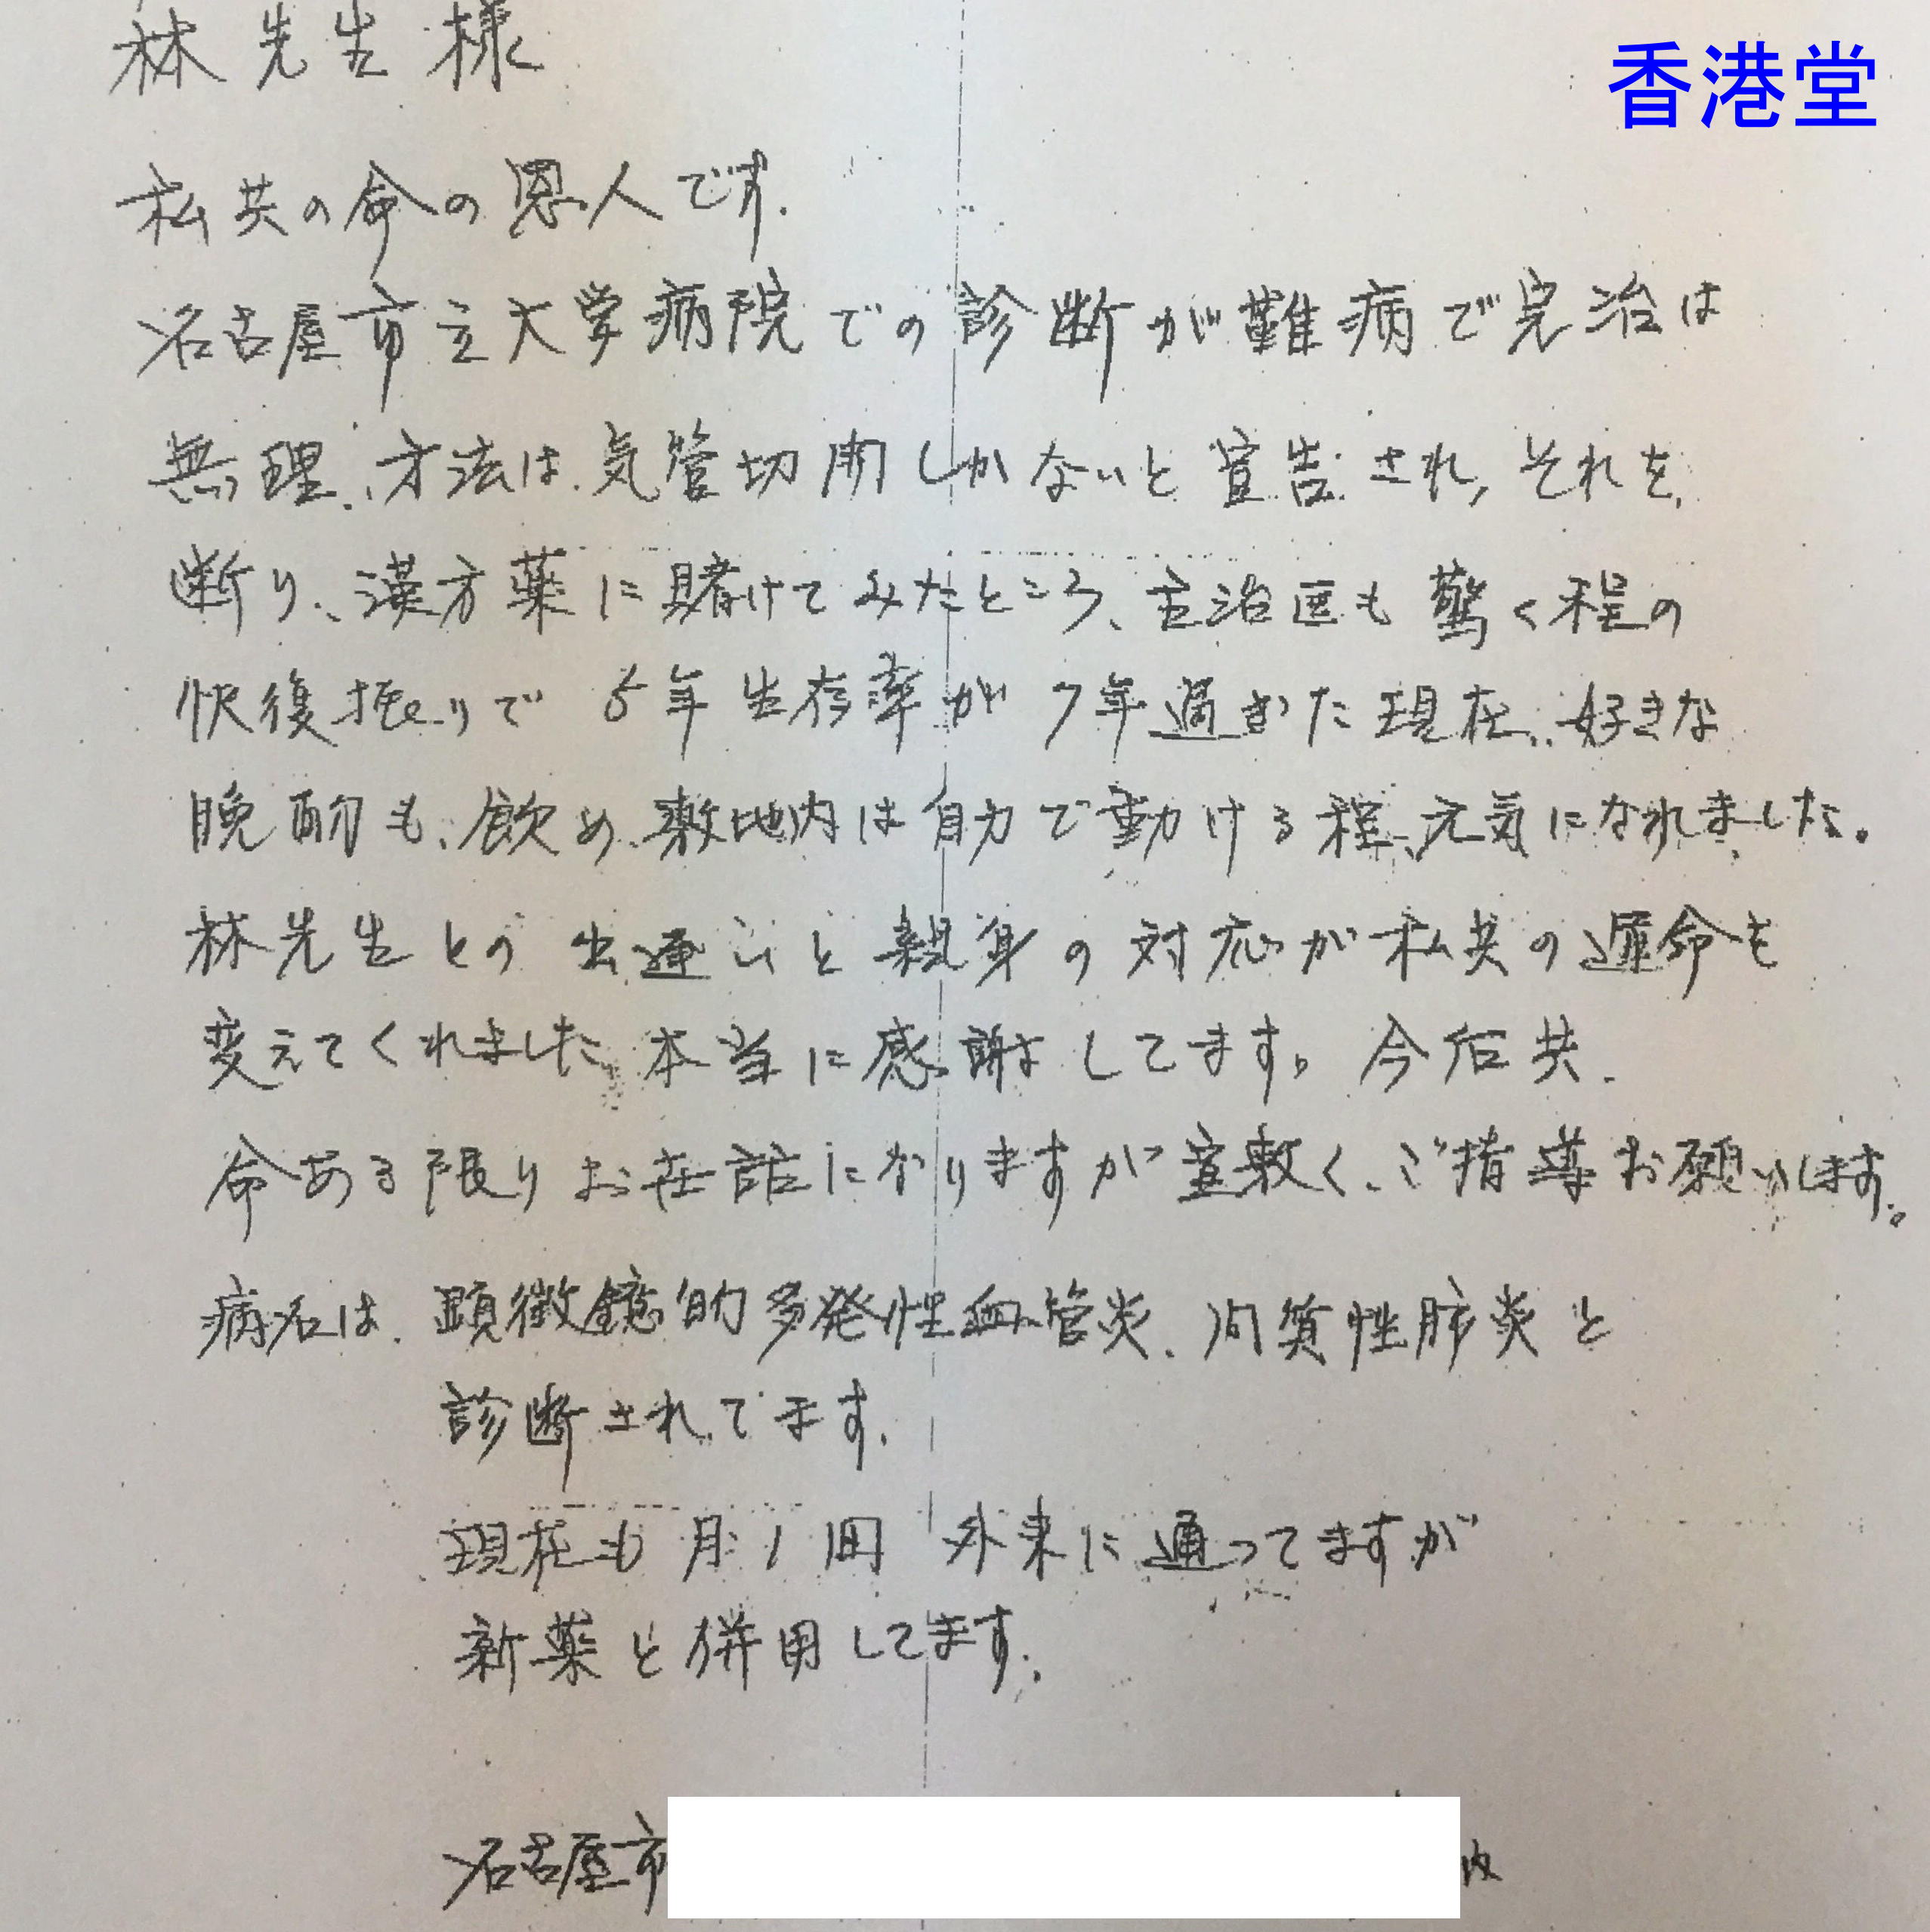 香港堂
林先生様
私共の命の恩人です.
名古屋市立大学病院での診断が難病で完治は
無理、方法は気管切開しかないと宣告され,それを
断り、漢方薬に賭けてみたところ、主治医も驚く程の
快復振りで 5年生存率が7年過ぎた現在、好きな
晩酌も、飲め、敷地内は自力で動ける程、元気になれました。
林先生との出逢いと親身の対応が私共の運命を
変えてくれました、本当に感謝してます。今后共、
命ある限りお世話になりますが宜敷く、ご指導お願いします。
病名は、顕微鏡的多発性血管炎、间質性肺炎と
診断されてます.
現在も月1回 外来に通ってますが
新薬と併用してます.
名古屋市